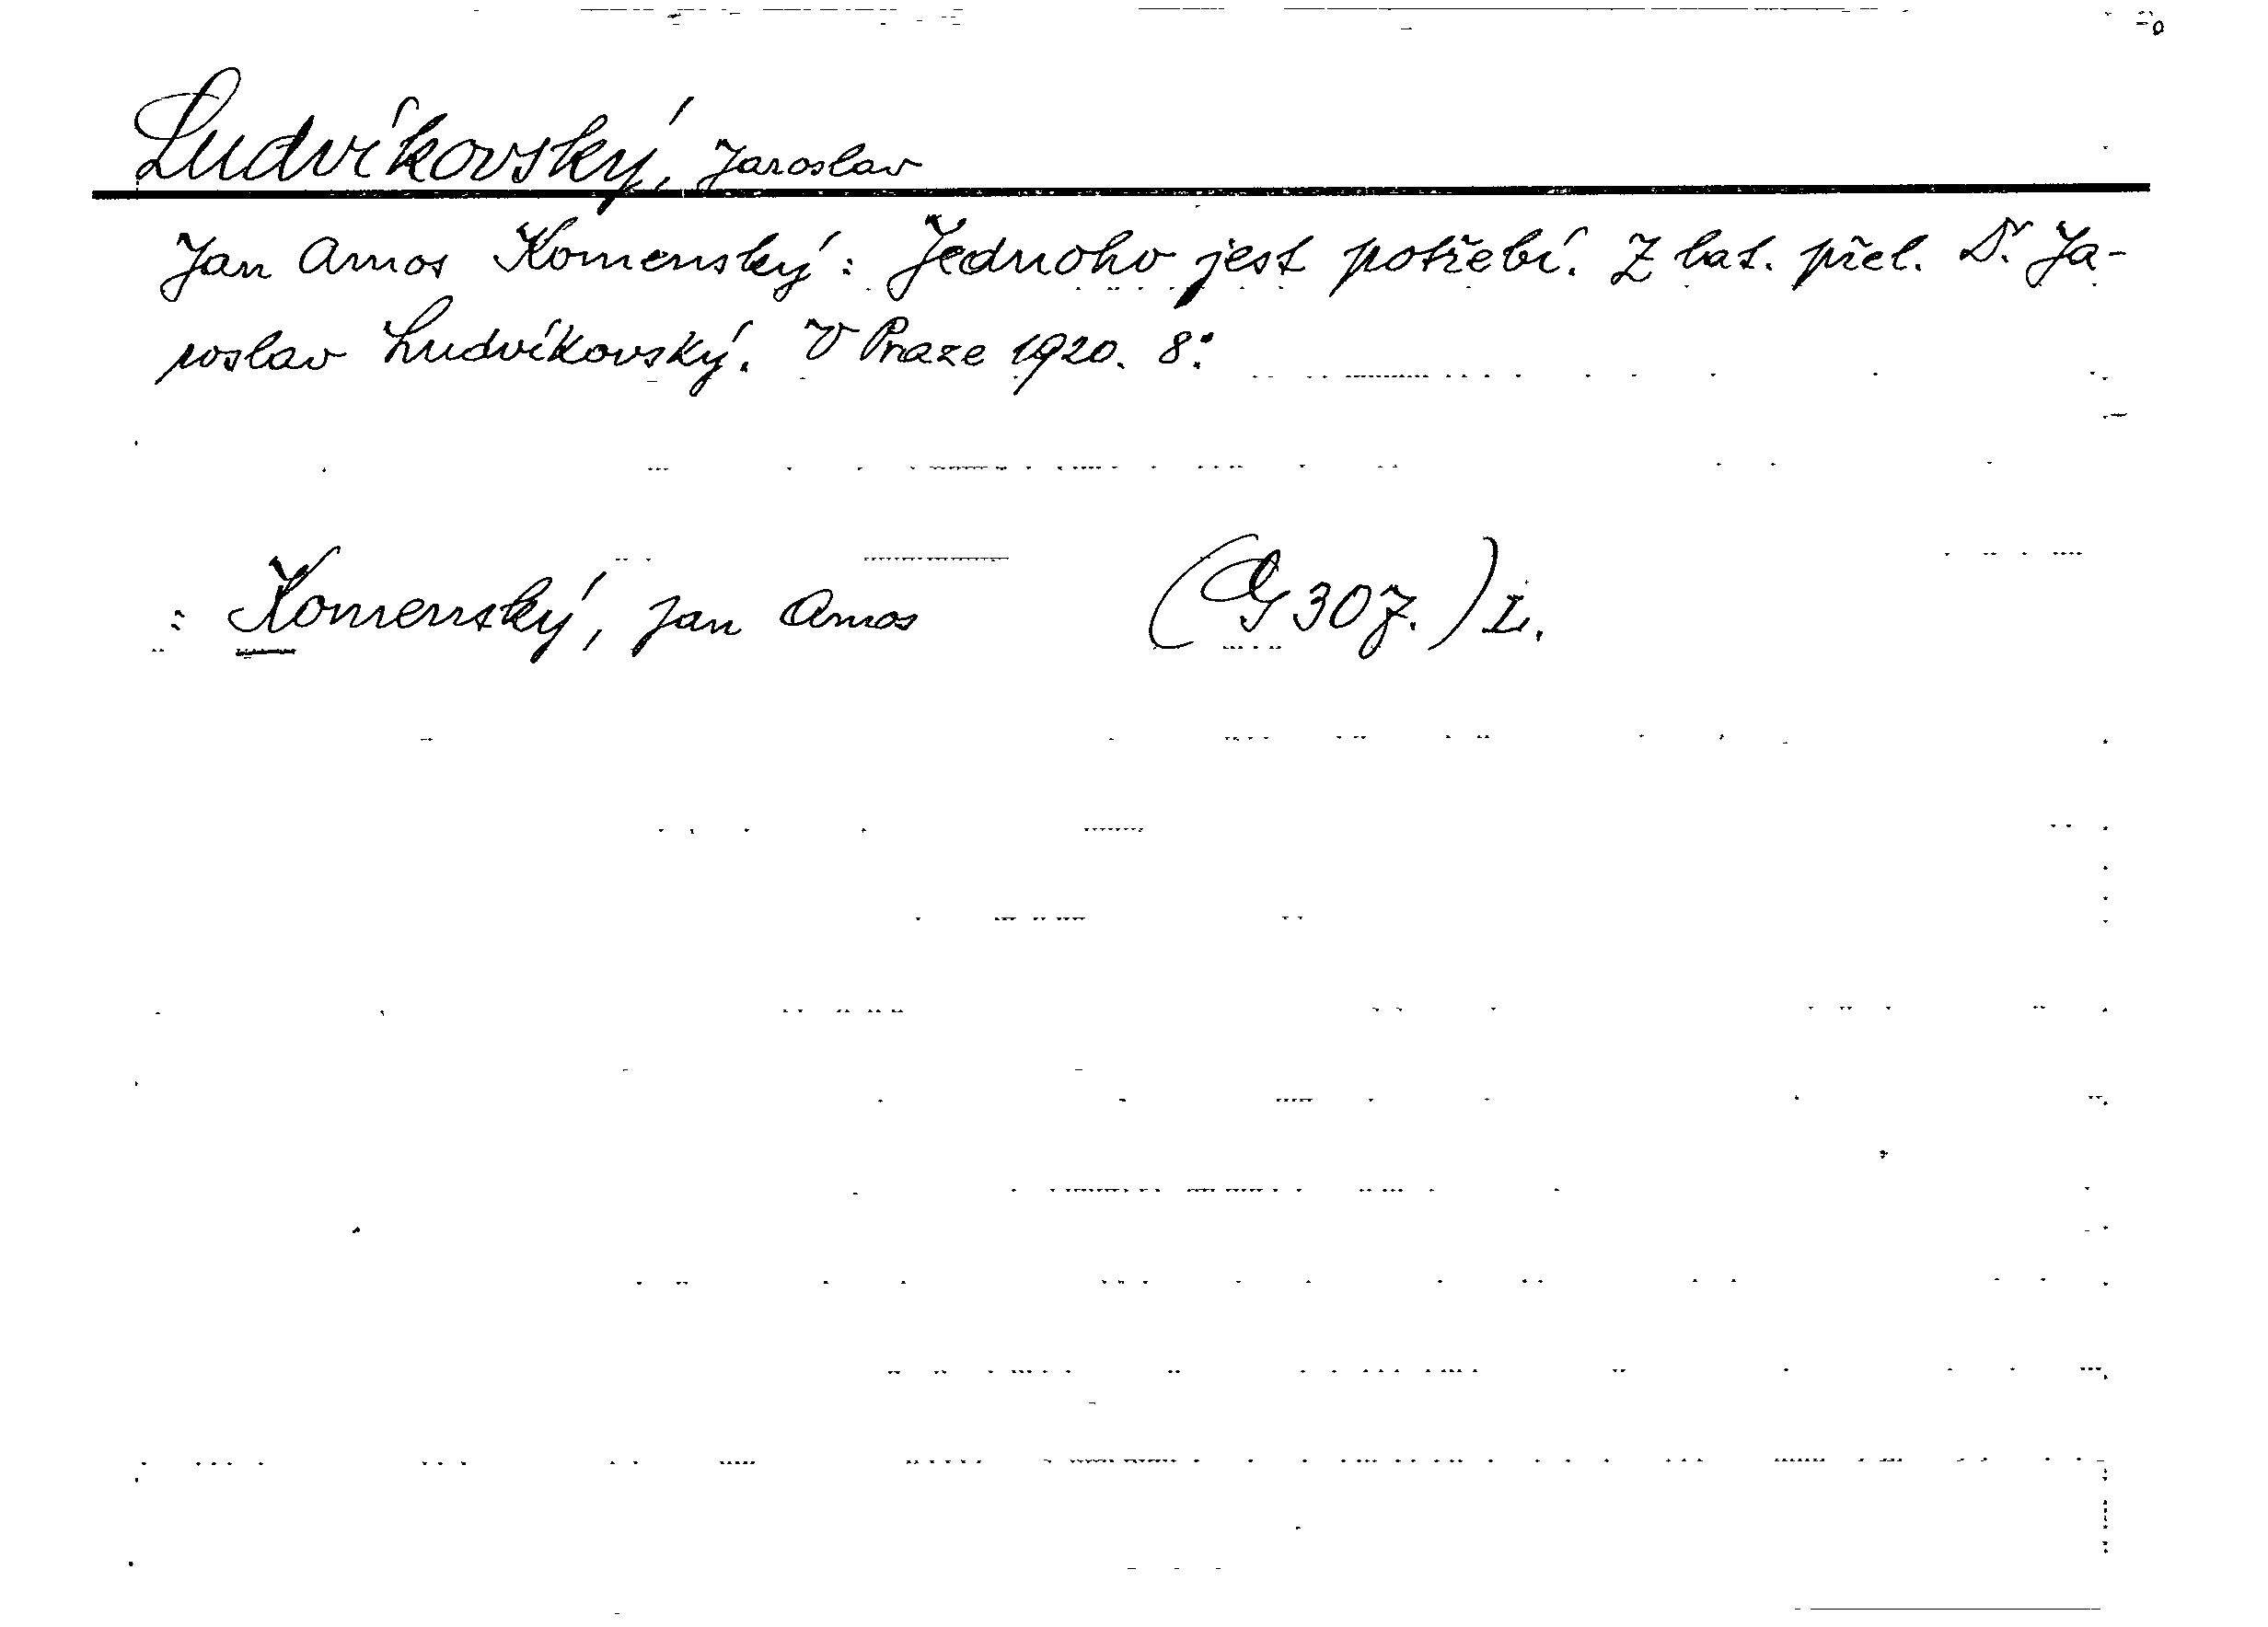 Ludvíkovský, Jaroslav
Jan Amos Komenský: Jednoho jest potřebí. Z lat. přel. Dr. Ja-
roslav Ludvíkovský. V Praze 1920. 8°.
: Komenský, Jan Amos (G 307.) L.